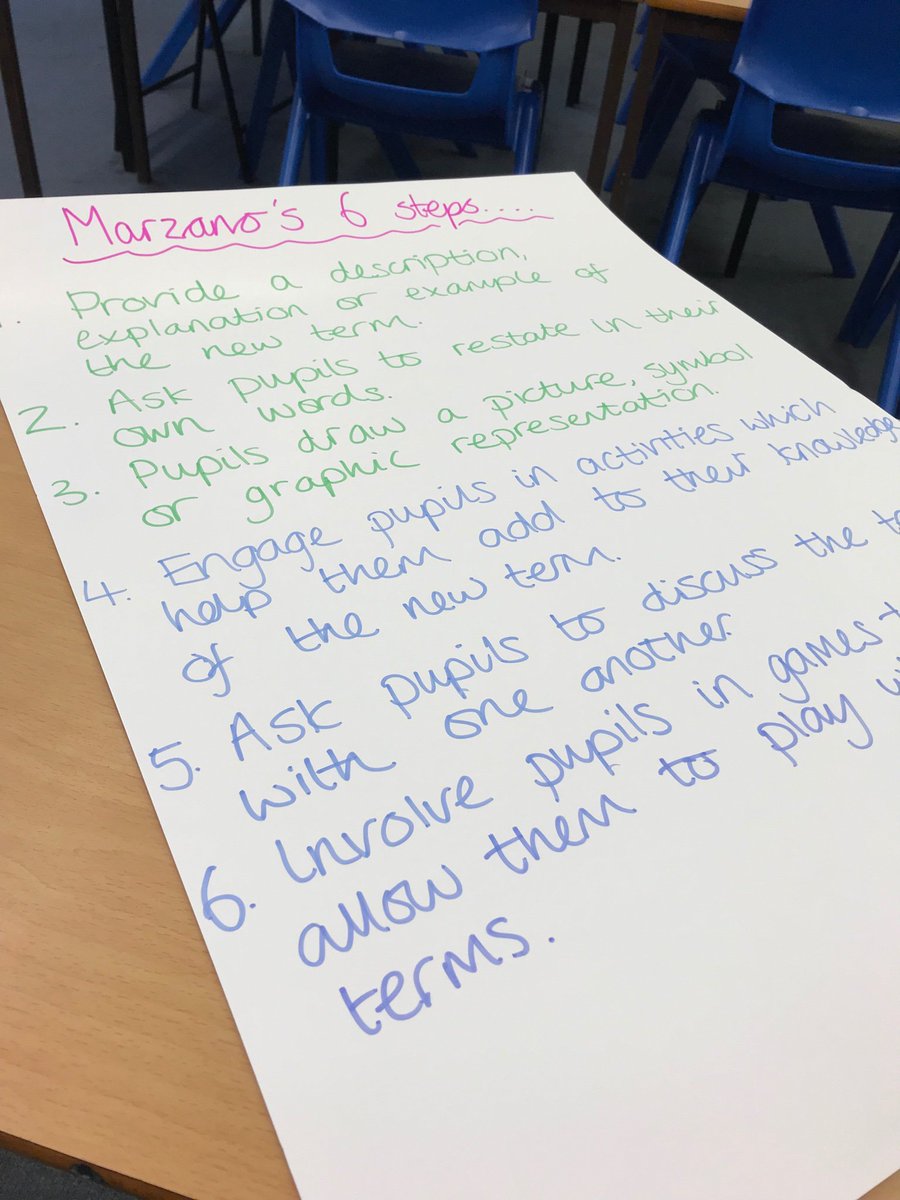 Marzano's 6 steps....
1. Provide a description,
explanation or example of
the new term.
2. Ask pupils to restate in their
own words.
3. Pupils draw a picture, symbol
or graphic representation.
4. Engage pupils in activities which
help them add to their knowledge
of the new term.
5. Ask pupils to discuss the
with one another.
6. Involve pupils in games
allow them to play
terms.